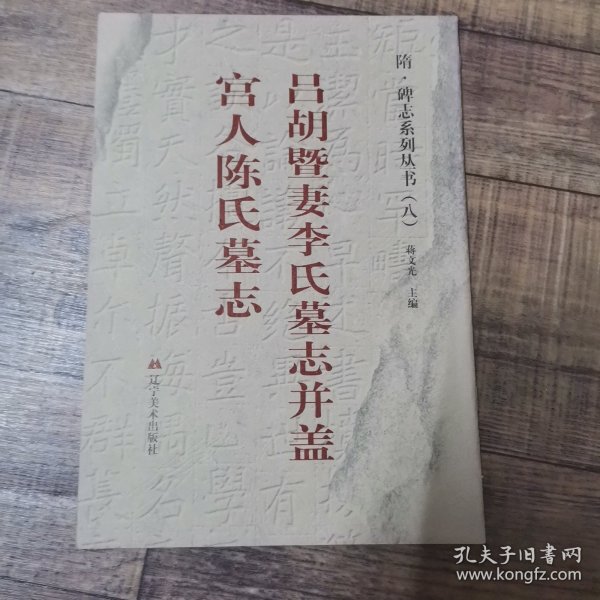 隋·碑志系列丛书（八）
蒋文光 主编
吕胡暨妻李氏墓志并盖
宫人陈氏墓志
辽宁美术出版社
孔夫子旧书网
www.kongfz.com